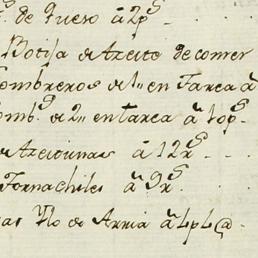 de Queso â 2p.s
Botija de Azeite de comer
Sombreros de 1.a en Tarea â
Somb.s de 2.a en tarea â 10p.s
de Azeitunas â 12r.s
Tornachiles â 9r.s
Ylo de Arria â 4p. @